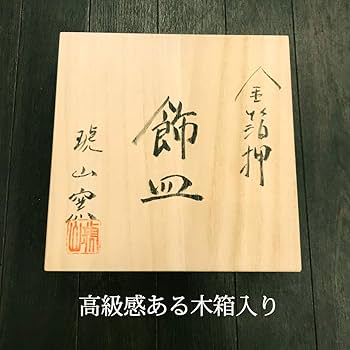 金箔押
飾皿
琥山窯
高級感ある木箱入り